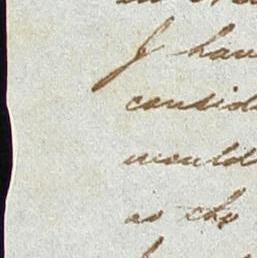 I hav
consid
would
as the